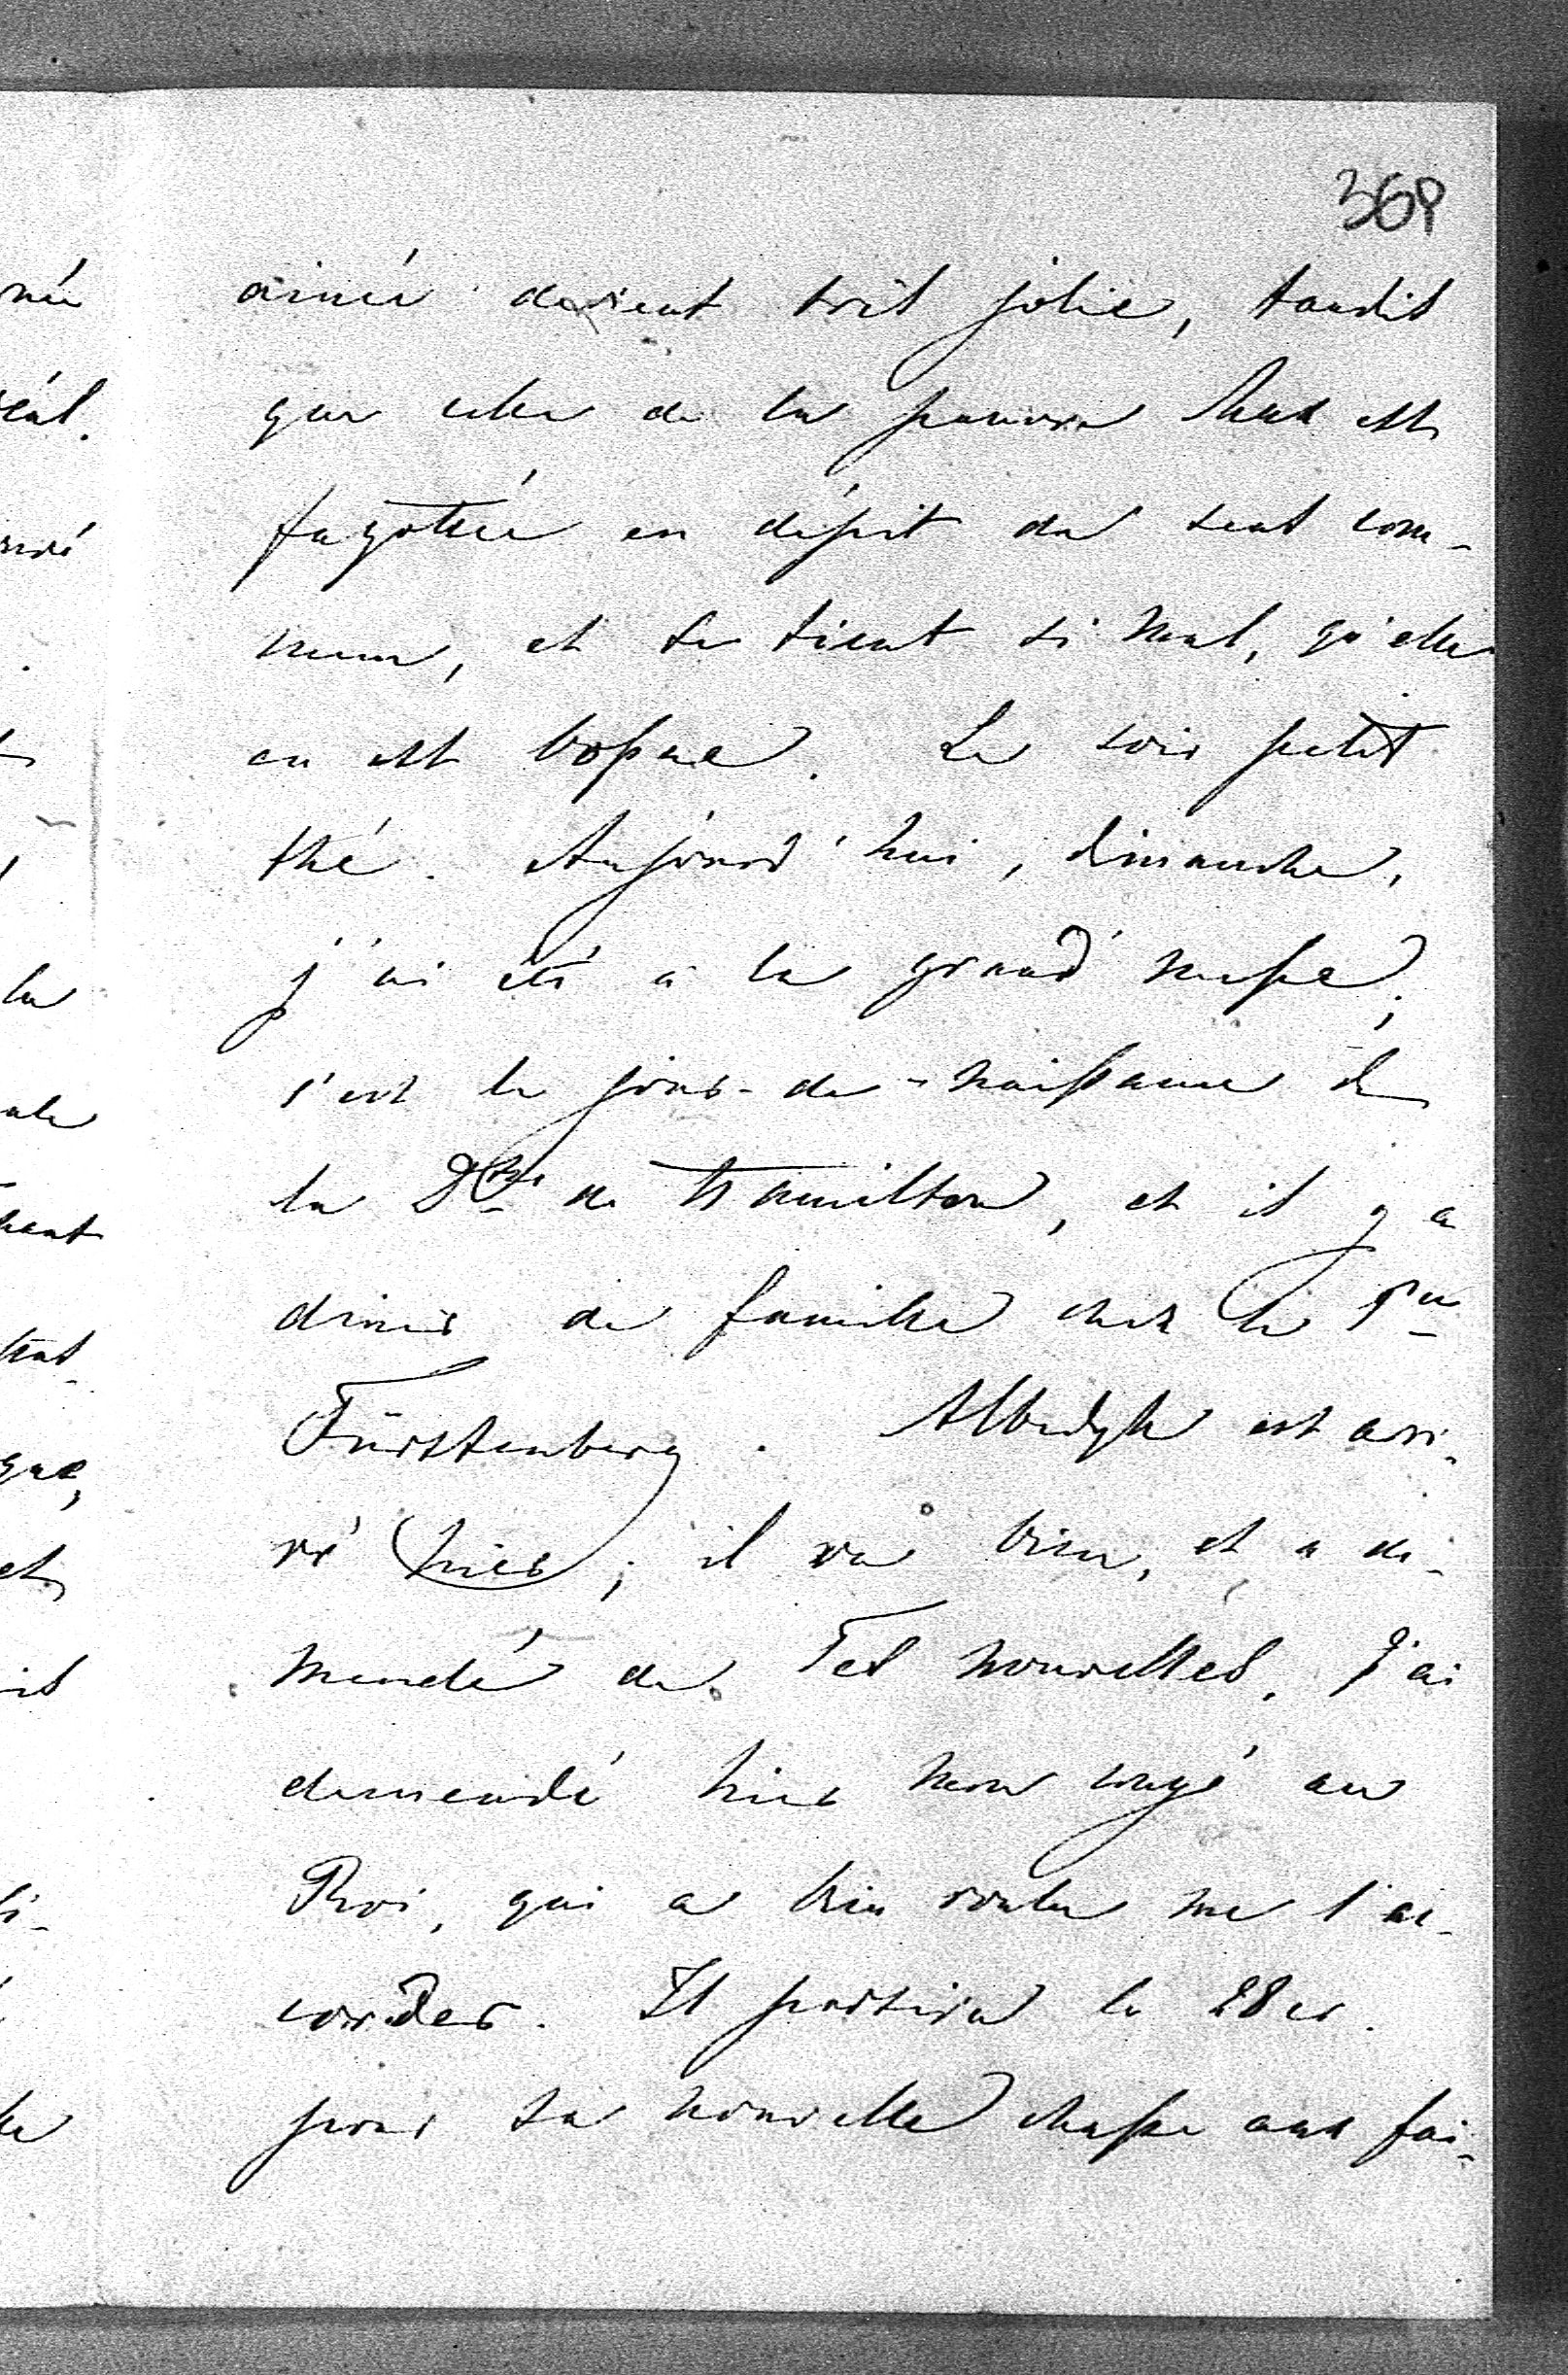 368
née
ainée devient très jolie, tandis
que celle de la pauvre Max est
fagottée en dépit du sens com-
mun, et se tient si mal, qu'elle
en est bossue. Le soir petit
thé. Aujourd'hui, dimanche,
j'ai été à la grand' messe;
c'est le jour-de-naissance de
la Dsse de Hamilton, et il y a
diner de famille chez le Pce
Fürstenberg. Albedyll est arri-
vé hier; il va bien, et a de-
mandé de Tes nouvelles. J'ai
demandé hier mon congé au
Roi, qui a bien voulu me l'ac-
corder. Il partira le 28 cr.
pour sa nouvelle chasse aux fai-
la
et